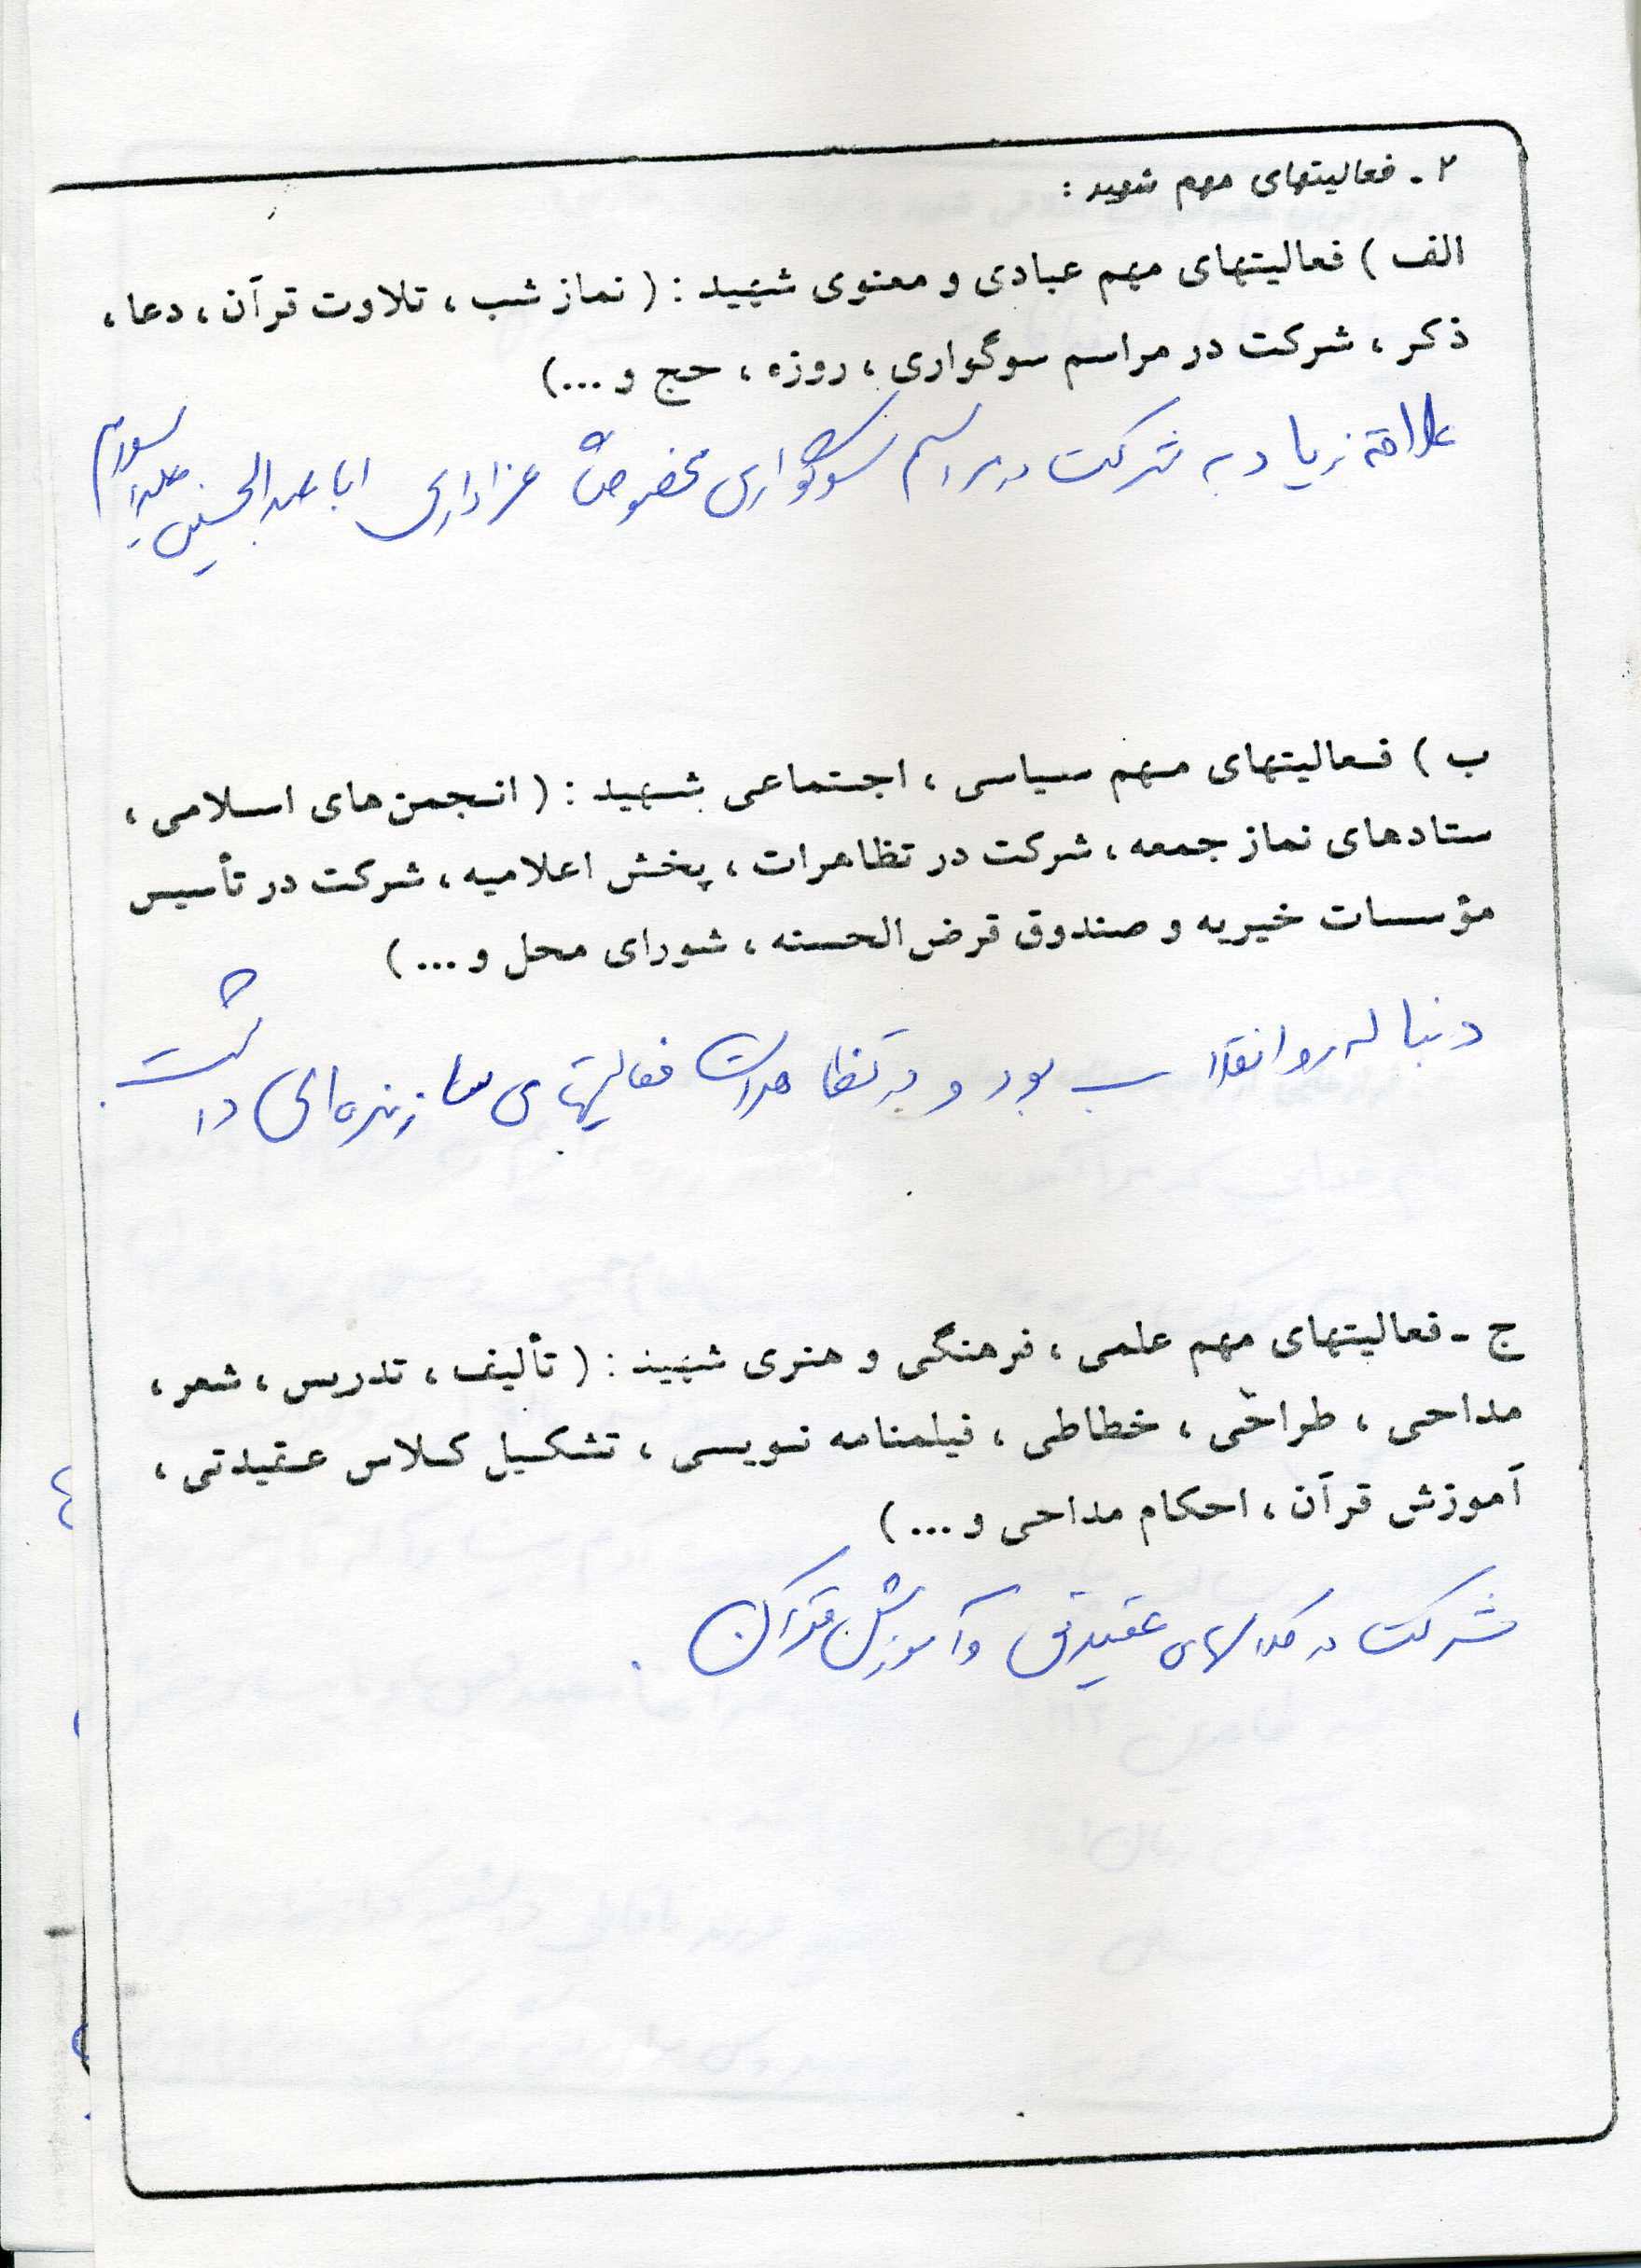 ۲ - فعالیتهای مهم شهید :
الف ) فعالیتهای مهم عبادی و معنوی شهید : ( نماز شب ، تلاوت قرآن ، دعا ،
ذکر ، شرکت در مراسم سوگواری ، روزه ، حج و ...)
علاقه زیاد به شرکت در مراسم سوگواری مخصوصاً عزاداری اباعبدالحسین علیه السلام
ب ) فعالیتهای مهم سیاسی ، اجتماعی شهید : ( انجمن‌های اسلامی ،
ستادهای نماز جمعه ، شرکت در تظاهرات ، پخش اعلامیه ، شرکت در تأسیس
مؤسسات خیریه و صندوق قرض‌الحسنه ، شورای محل و ... )
دنباله رو انقلاب بود و در تظاهرات فعالیتهای سازنده‌ای داشت .
ج - فعالیتهای مهم علمی ، فرهنگی و هنری شهید : ( تألیف ، تدریس ، شعر ،
مداحی ، طراحی ، خطاطی ، فیلمنامه نویسی ، تشکیل کلاس عقیدتی ،
آموزش قرآن ، احکام مداحی و ... )
شرکت در کلاسهای عقیدتی و آموزش قرآن .